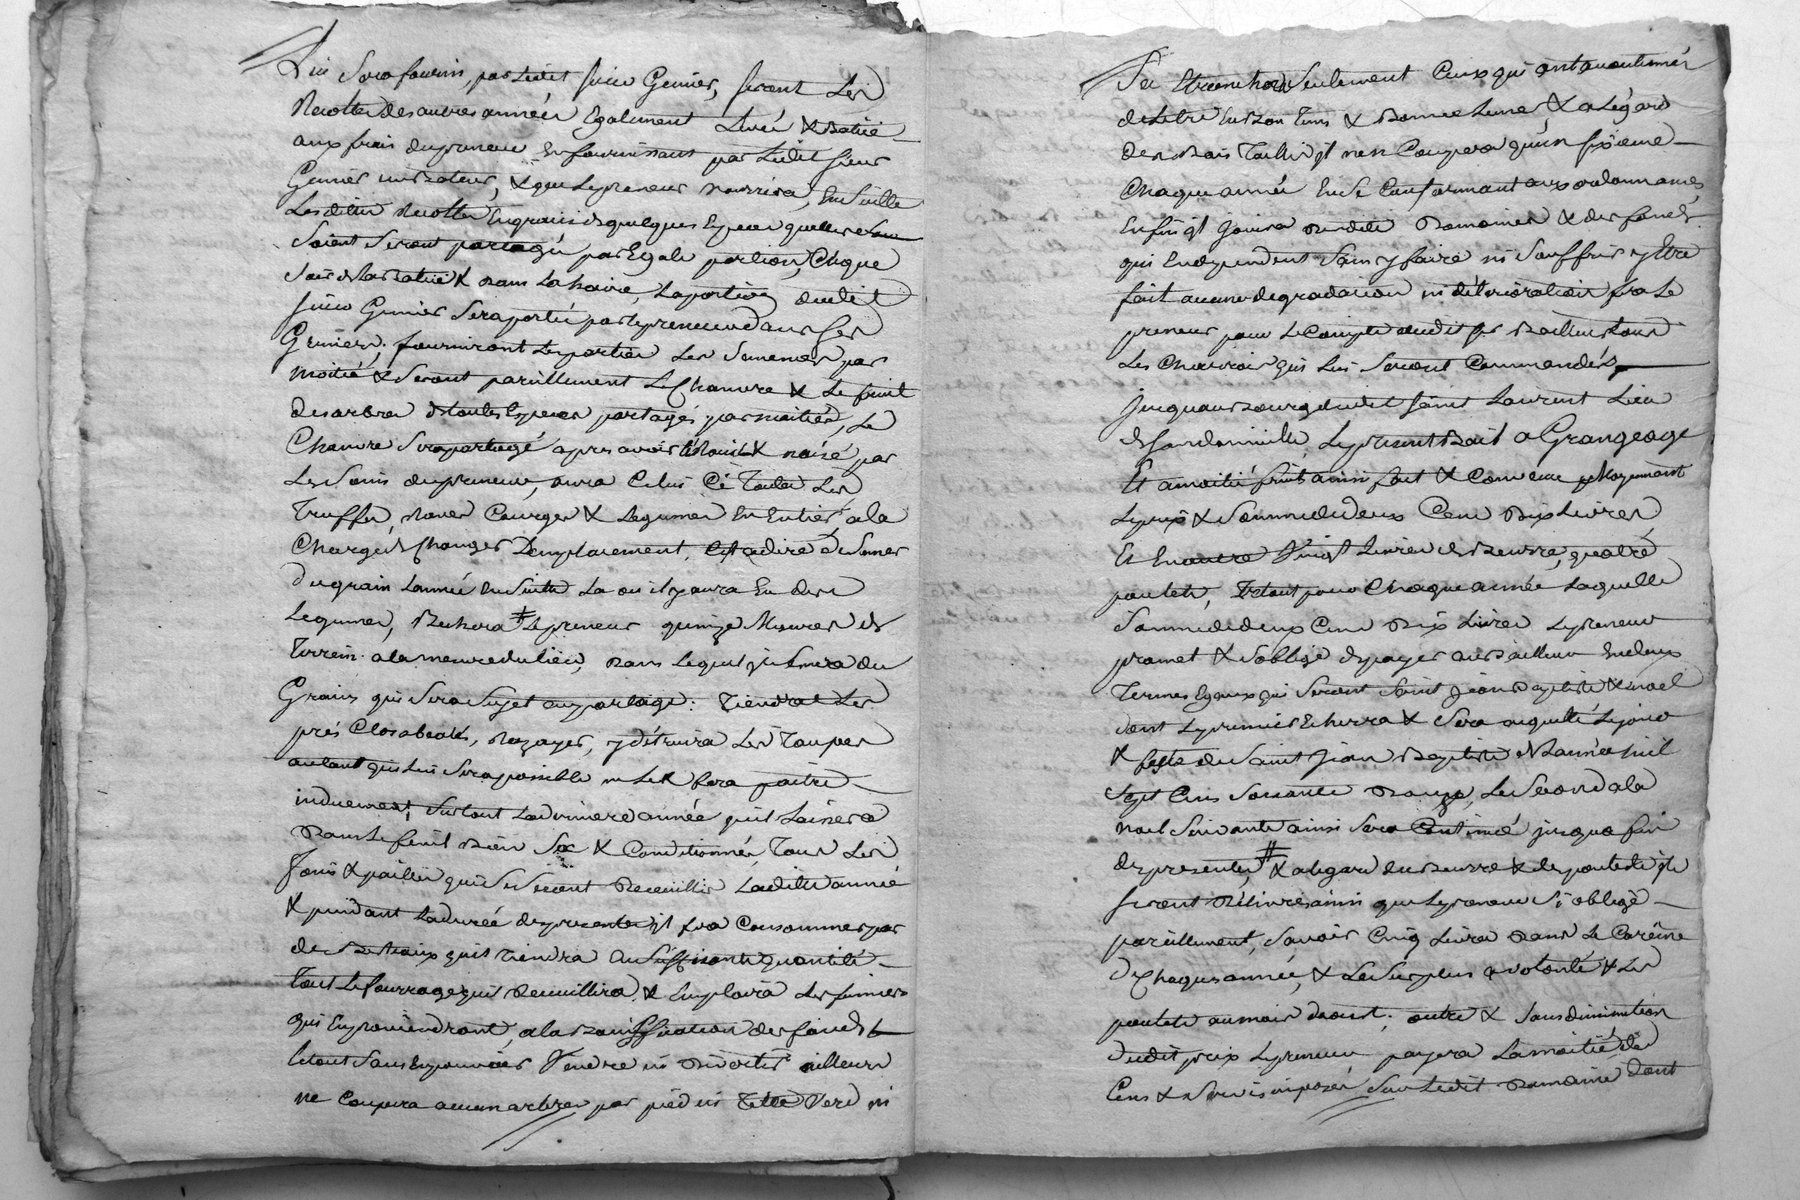 Lui Sera fourni, par Ledit sieur Genier, seront Les
Recoltes des autres année Egalement Livée & Batüe
aux frais du preneur En fournissant par Ledit sieur
Genier un Bateur, & que Le preneur nourrira, En Suitte
Les dittes Recoltes En grains de quelques Especes quelles
Soient Seront partagée par Egale portion, Chque
Soir de La Batüe & dans La haire, La portion dudit
sieur Genier Sera portée par Le preneur dans Ses
Greniers. fourniront Les parties Les Semences par
moitié & Seront pareillement Le Chanvre & Le fruit
des arbres de toutes Especes partagés par moitiés, Le
Chanvre Sera partagé apres avoir & naisé par
Les Soins du preneur, aura Celui Cÿ Toutes Les
Truffes, Raves Courges & Legumes En Entier, a la
Charge de Changer Demplacement, C'est a dire de Semer
du grain Lannée En Suitte La ou il y aura Eu des
Legumes, # Le preneur quinze Mesures de
Terrein a la mesure du lieu, dans Lequel il Semera du
Grains qui Sera Sujet au partage: Tiendra Les
prés Clos abealés, Razayés, y détruira Les Taupes
autant qui Lui Sera possible ne Les fera paitre
induement, Surtout La derniere année quil Laissera
dans Le fenil bien Sec & Conditionnés Tous Les
foins & pailles qui Se Seront Recueillis Laditte année
& pendant La durée des presentes il fera Consommer par
des Bestiaux quil Tiendra En Suffisante quantité
Tout Le fourrage quil Recueillira & Emploira Les fumiers
qui En proviendront, a la Bonniffication des fonds
Le tout Sans En pouvoir Vendre ni Divertir ailleurs
ne Coupera aucun arbres par pied ni Tette Verd ni
Sec Seulement Ceux qui ont accoutumés
de Letre En Bon Tems & Bonne Lune, & a Légard
des Bois Taillis jl nen Coupera qu'un sixieme
Chaque année En Se Conformant aux ordonnances
Enfin jl Jouira desdits Domaines & des fonds
qui En dependent Sans y faire ni Souffrir y Etre
fait aucune degradation ni détérioration fera Le
preneur pour Le Compte dudit Sr Bailleur Tous
Les Charrois qui Lui Seront Commandés
Jusqu'au Bourg dudit saint Laurent Lieu
de Le present Bail a Grangeage
Et a moitié fruits ainsi fait & Convenu Moyennant
Le prix & Somme de deux Cent Dix Livres
Et En outre Vingt Livres de Beurre, quatre
poulets, Le tout pour Chaque année Laquelle
Somme de deux Cent Dix Livres Le preneur
promet & Soblige de payer au Bailleur En deux
Termes Egaux qui Seront Saint Jean Baptiste & noel
dont Le premier Echerra & Sera acquitté Le jour
& feste de Saint Jean Baptiste de Lannée mil
Sept Cens Soixante Douze, Le Second a la
noel Suivante ainsi Sera Continué jusqua fin
des presentes, # & a legard du Beurre & des poulets ils
seront Délivrés ainsi que Le preneur S'i oblige
pareillement, Savoir Cinq Livres dans Le Carême
de Chaque année, & Le Surplus a volonté & Les
poulets au mois daout; outre & Sans diminution
dudit prix Le preneur payera La moitié des
Cens & Servis imposés Sur Ledit Domaine dont